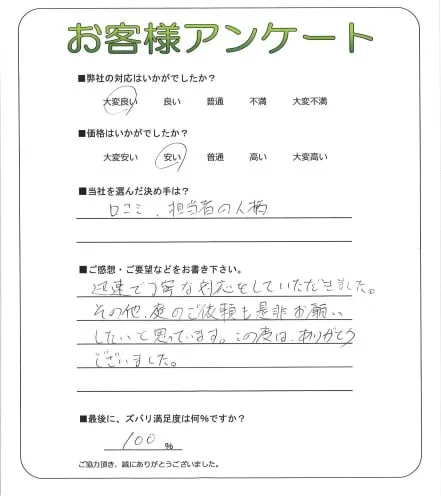 お客様アンケート
■弊社の対応はいかがでしたか？
大変良い 良い 普通 不満 大変不満
■価格はいかがでしたか？
大変安い 安い 普通 高い 大変高い
■当社を選んだ決め手は？
口コミ、担当者の人柄
■ご感想・ご要望などをお書き下さい。
迅速で丁寧な対応をしていただきました。
その他、庭のご依頼も是非お願い
したいと思っています。この度は、ありがとう
ございました。
■最後に、ズバリ満足度は何％ですか？
100 ％
ご協力頂き、誠にありがとうございました。